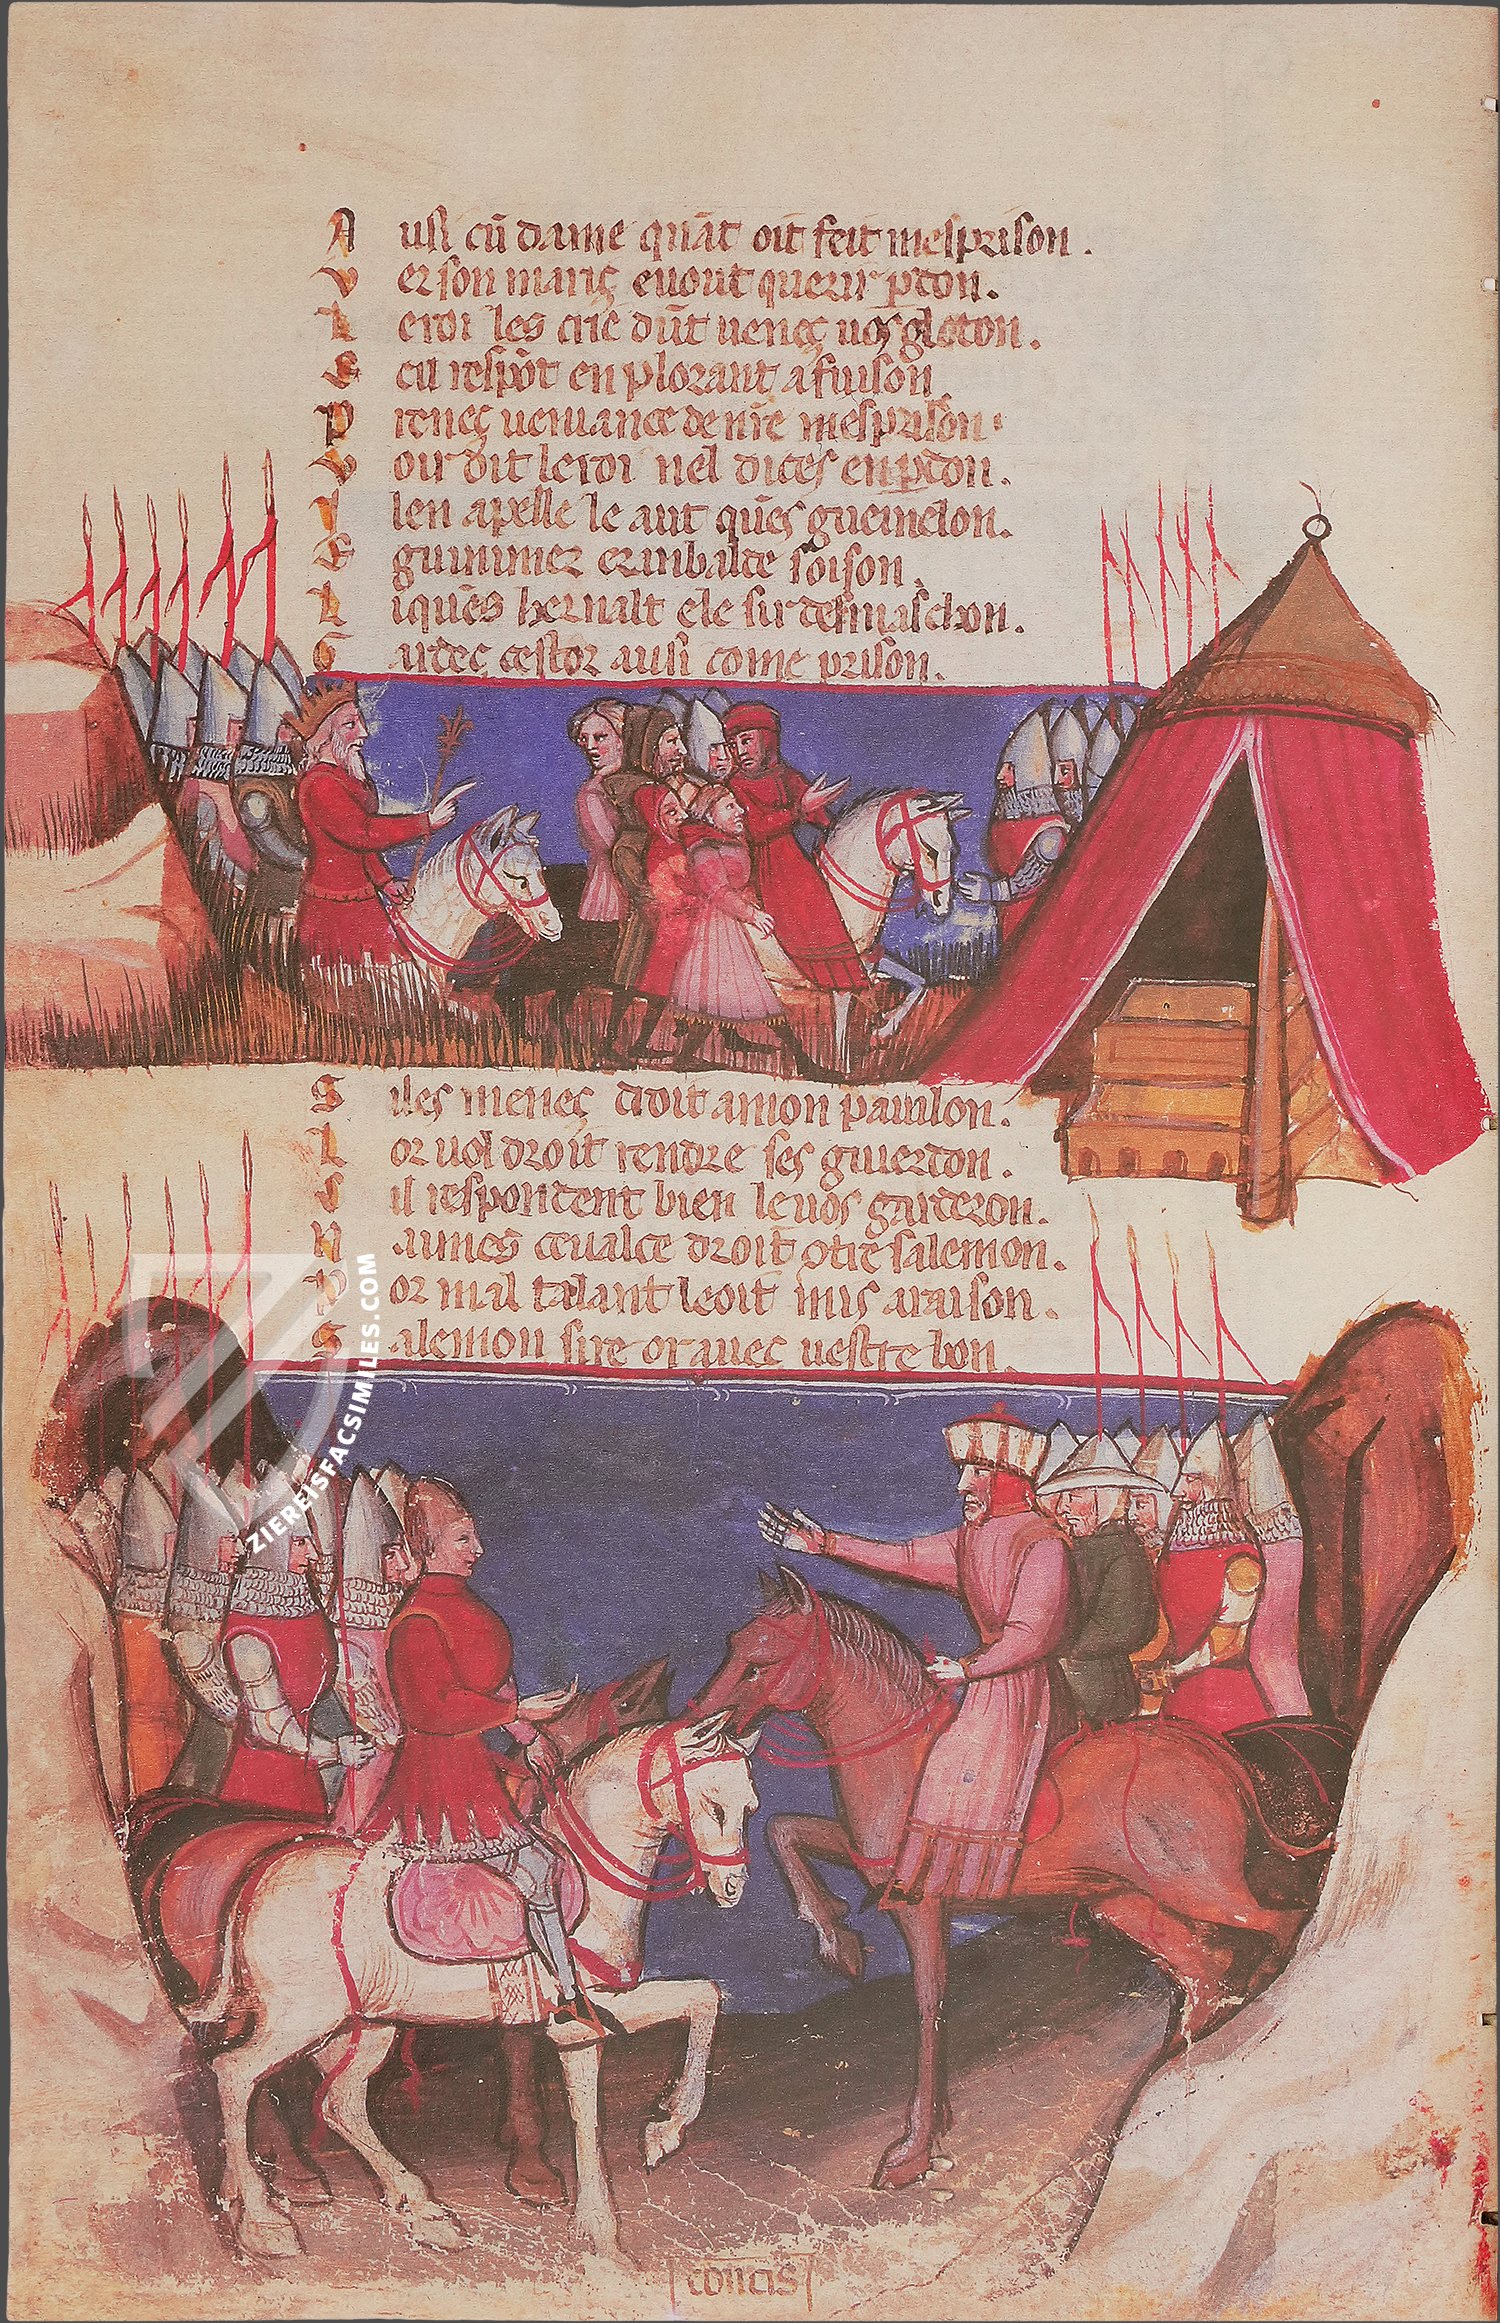 A usi cū dame quāt oit feit mesprison.
V er son mariç e uout querir pdon.
L e roi les crie dūt ueneç uos gloton.
E cil respōt en plorant a fuison
P reneç ueniance de nr̄e mesprison.
V oir dit le roi nel dites en pdon.
I l en apelle le aut quēs guemelon.
E guinimer e rinbalt de soison.
L i quēs hernalt e le sir de maschon.
G uideç cestor ausi come prison.
S i les meneç droit a mon pauilon.
L or uol droit rendre ses guierdon.
C il respondent bien le uos garderon.
N aimes ceualce droit otre salemon.
P or mal talant le oit mis a raison.
S alemon sire or aueç uestre bon.
concis
ZIEREISFACSIMILES.COM